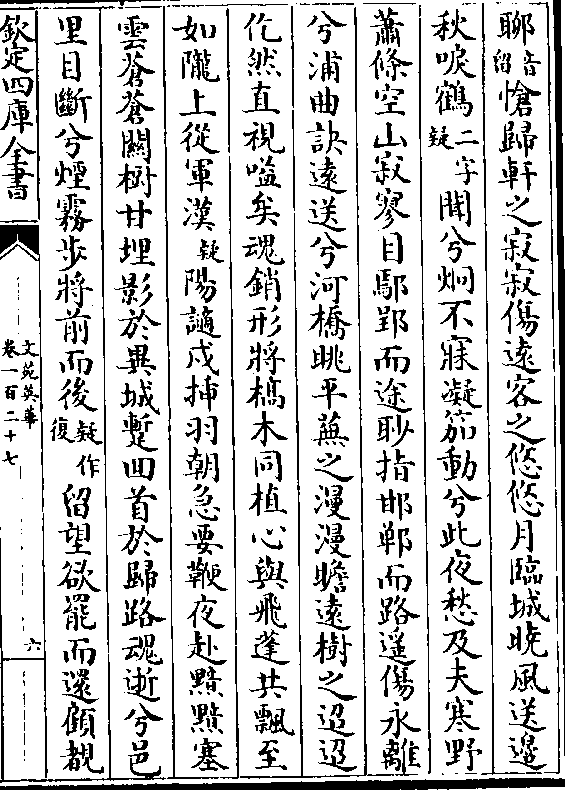 聊音留愴歸軒之寂寂傷遠客之悠悠月臨城曉風送邊
秋唳鶴二字疑聞兮炯不寐凝笳動兮此夜愁及夫寒野
蕭條空山寂寥目鄢郢而途眇指邯鄲而路遥傷永離
兮浦曲訣遠送兮河橋眺平蕪之漫漫瞻遠樹之迢迢
仡然直視嗌矣魂銷形將槁木同植心與飛蓬共飄至
如隴上從軍漢疑陽謫戍揷羽朝急要鞭夜赴黯黯塞
雲蒼蒼關樹甘埋影於異城蹔回首於歸路魂逝兮邑
里目斷兮煙霧步將前而後疑作復留望欲罷而還顧覩
欽定四庫全書
文苑英華
卷一百二十七
六